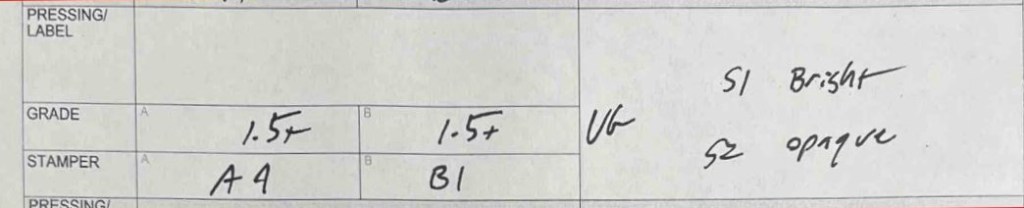 PRESSING/
LABEL
S1 Bright
GRADE A 1.5+ B 1.5+ VG
S2 opaque
STAMPER A A4 B B1
PRESSING/